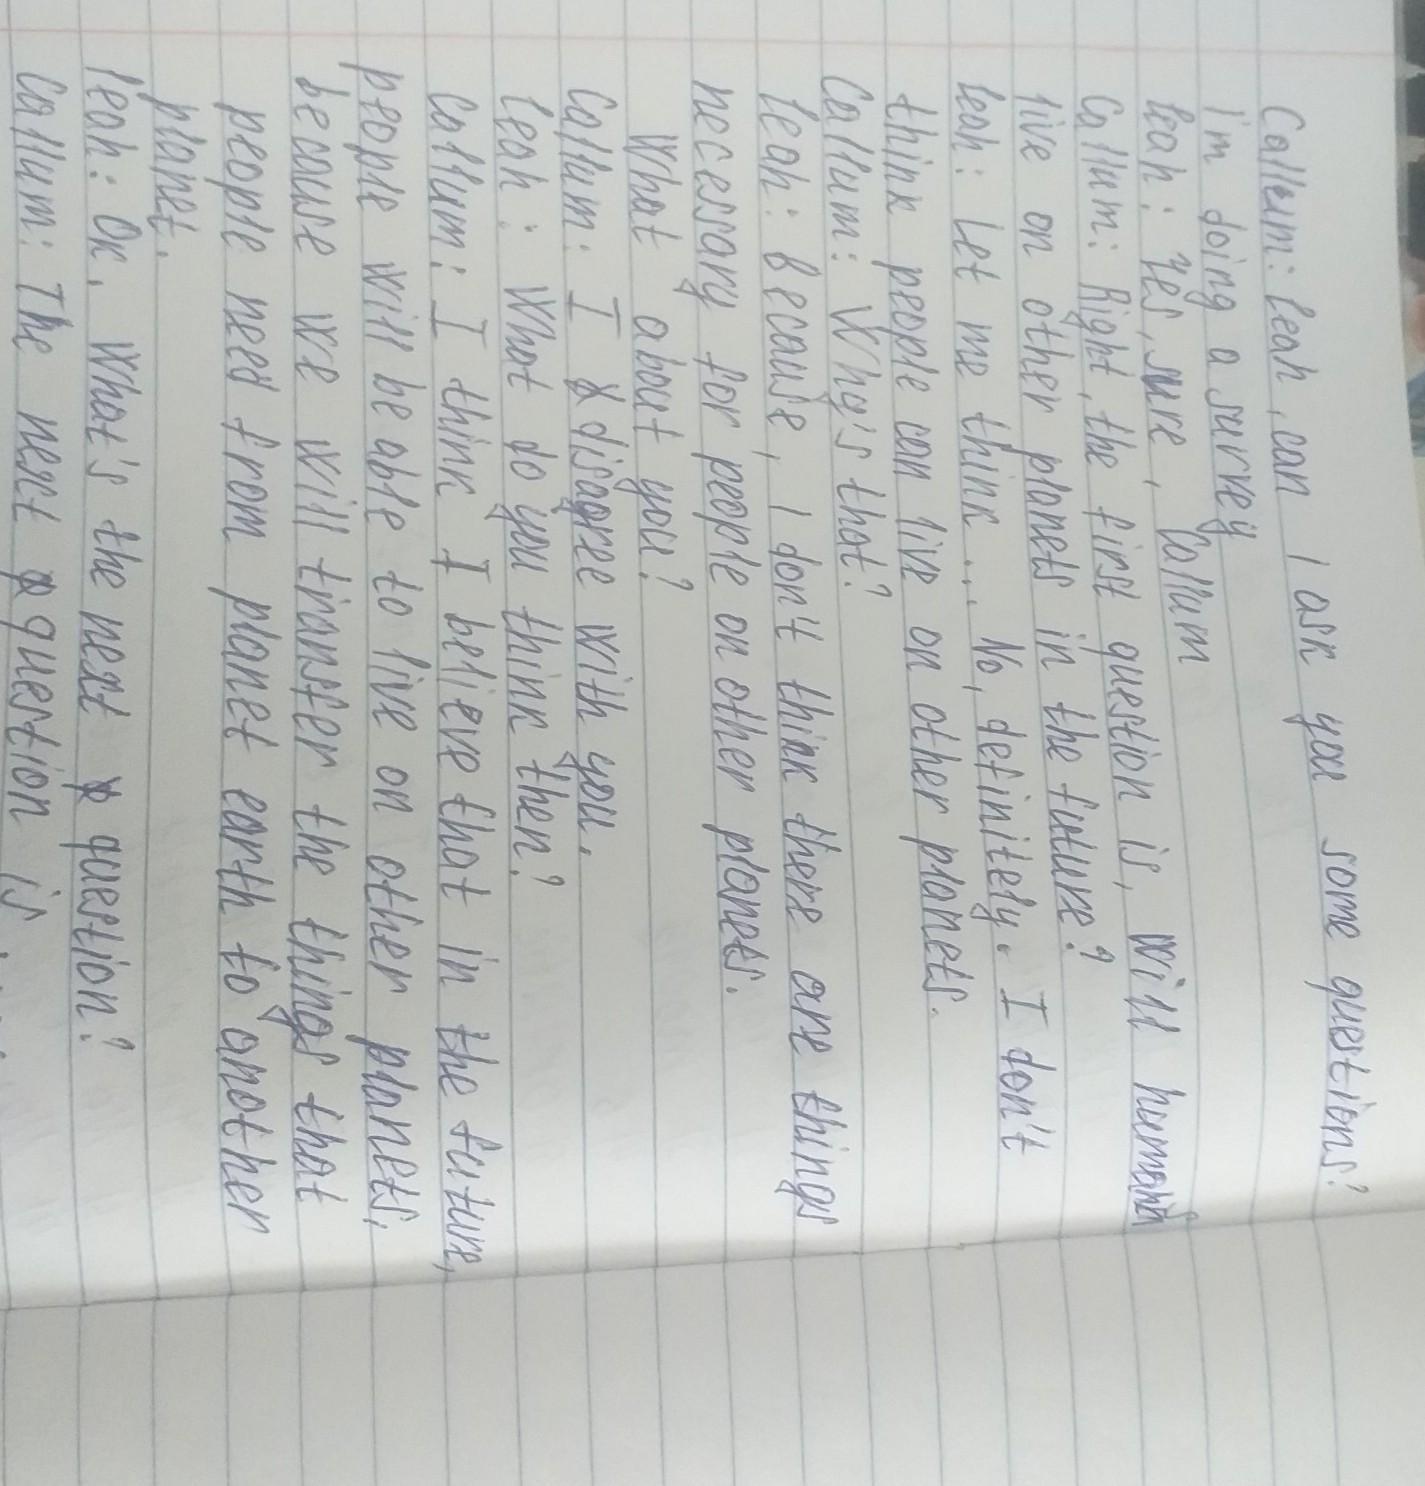 Callum: Leah, can I ask you some questions?
I'm doing a survey
Leah: Yes, sure, Callum
Callum: Right, the first question is, will humans
live on other planets in the future?
Leah: Let me think... No, definitely. I don't
think people can live on other planets.
Callum: Why's that?
Leah: Because, I don't think there are things
necessary for people on other planets.
What about you?
Callum: I disagree with you.
Leah: What do you think then?
Callum: I think I believe that in the future,
people will be able to live on other planets,
because we will transfer the things that
people need from planet earth to another
planet.
Leah: Ok. What's the next question?
Callum: The next question is...